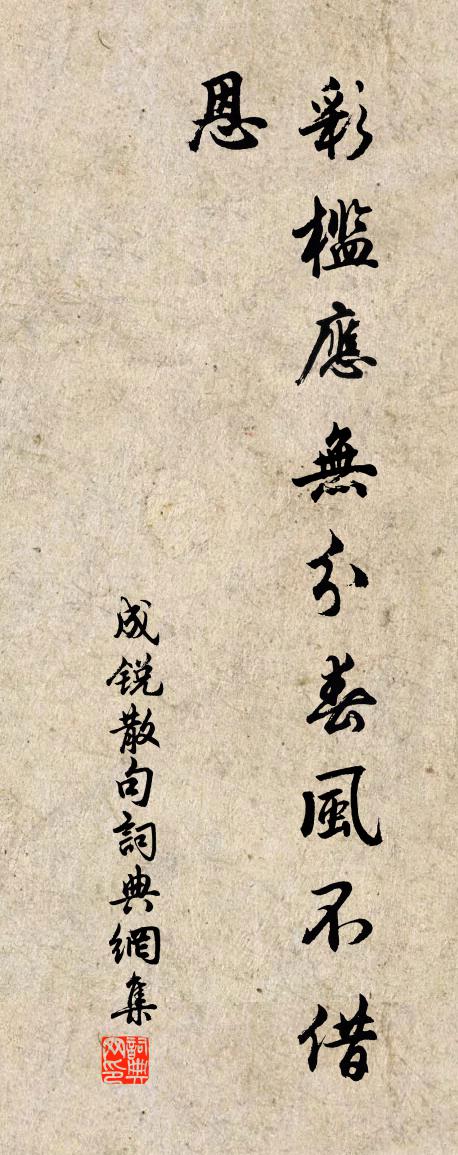 彩檻應無分春風不借
恩
成銳散句詞典網集
詞典網印